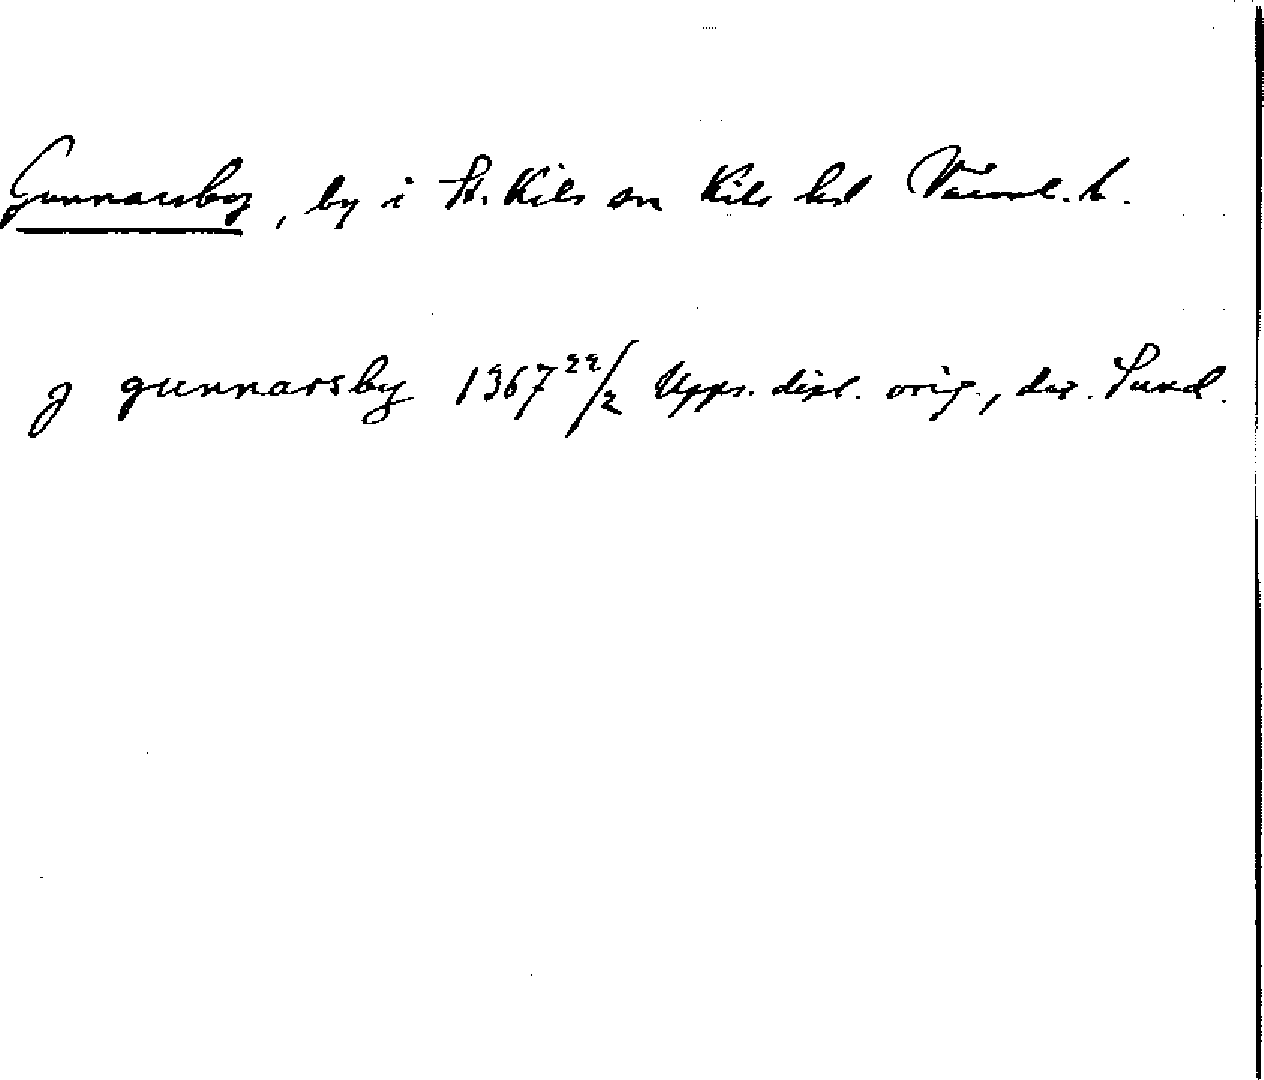 Gunnarsby, by i St. Kils sn Kils hd Värml. l.
J gunnarsby 1367 22/2 Upps. dipl. orig., dep. Lund.